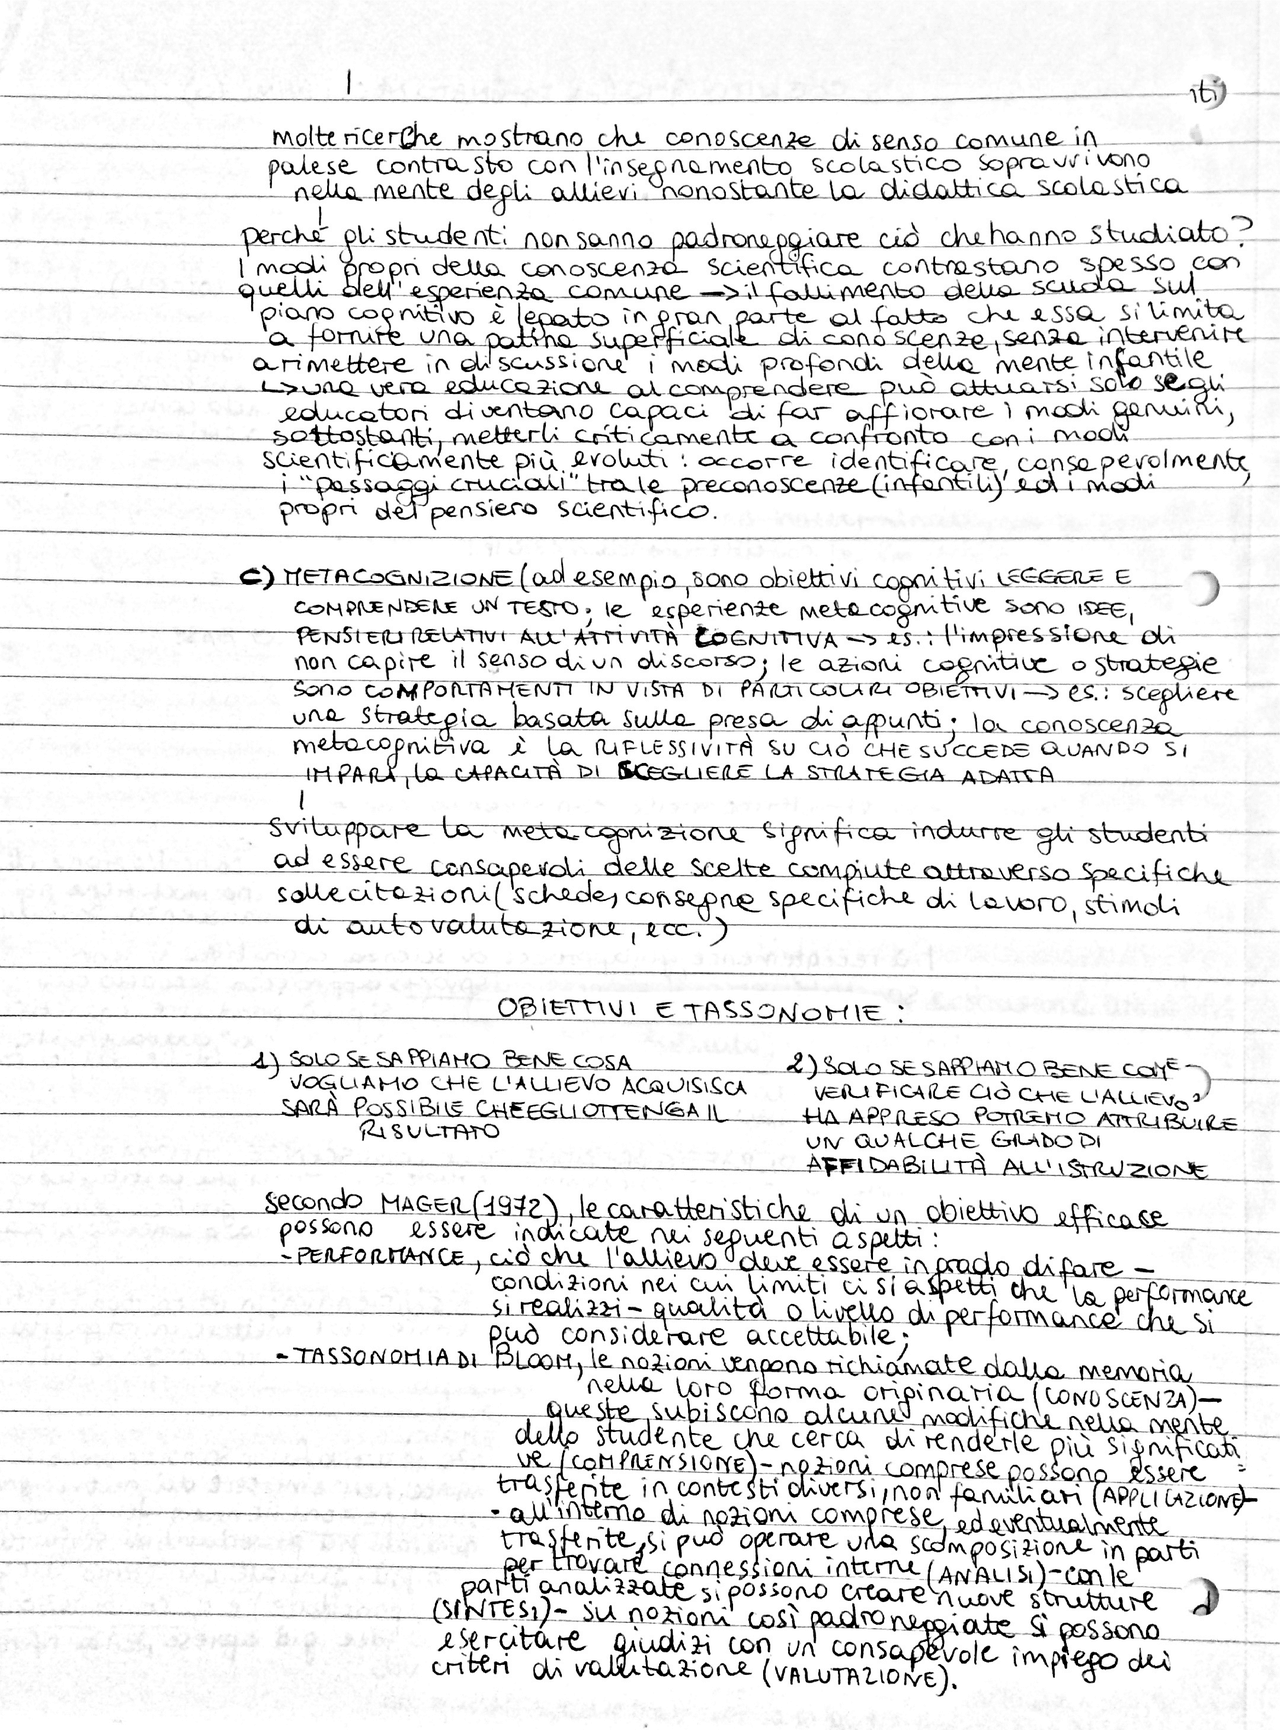 iti
molte ricerche mostrano che conoscenze di senso comune in
palese contrasto con l'insegnamento scolastico sopravvivono
nella mente degli allievi nonostante la didattica scolastica
perché gli studenti non sanno padroneggiare ciò che hanno studiato?
I modi propri della conoscenza scientifica contrastano spesso con
quelli dell'esperienza comune → il fallimento della scuola sul
piano cognitivo è legato in gran parte al fatto che essa si limita
a fornire una patina superficiale di conoscenze, senza intervenire
a rimettere in discussione i modi profondi della mente infantile
↳ una vera educazione al comprendere può attuarsi solo se gli
educatori diventano capaci di far affiorare i modi genuini,
sottostanti, metterli criticamente a confronto con i modi
scientificamente più evoluti: occorre identificare, consapevolmente,
i "passaggi cruciali" tra le preconoscenze (infantili) ed i modi
propri del pensiero scientifico.
C) METACOGNIZIONE (ad esempio, sono obiettivi cognitivi LEGGERE E
COMPRENDERE UN TESTO; le esperienze metacognitive sono IDEE,
PENSIERI RELATIVI ALL'ATTIVITÀ COGNITIVA → es.: l'impressione di
non capire il senso di un discorso; le azioni cognitive o strategie
sono COMPORTAMENTI IN VISTA DI PARTICOLARI OBIETTIVI → es.: scegliere
una strategia basata sulla presa di appunti; la conoscenza
metacognitiva è LA RIFLESSIVITÀ SU CIÒ CHE SUCCEDE QUANDO SI
IMPARA, la CAPACITÀ DI SCEGLIERE LA STRATEGIA ADATTA
sviluppare la metacognizione significa indurre gli studenti
ad essere consapevoli delle scelte compiute attraverso specifiche
sollecitazioni (schede, consegne specifiche di lavoro, stimoli
di autovalutazione, ecc.)
OBIETTIVI E TASSONOMIE:
1) SOLO SE SAPPIAMO BENE COSA
VOGLIAMO CHE L'ALLIEVO ACQUISISCA
SARÀ POSSIBILE CHE EGLI OTTENGA IL
RISULTATO
2) SOLO SE SAPPIAMO BENE COME
VERIFICARE CIÒ CHE L'ALLIEVO
HA APPRESO POTREMO ATTRIBUIRE
UN QUALCHE GRADO DI
AFFIDABILITÀ ALL'ISTRUZIONE
secondo MAGER (1972), le caratteristiche di un obiettivo efficace
possono essere indicate nei seguenti aspetti:
- PERFORMANCE, ciò che l'allievo deve essere in grado di fare -
condizioni nei cui limiti ci si aspetti che la performance
si realizzi - qualità o livello di performance che si
può considerare accettabile;
- TASSONOMIA DI BLOOM, le nozioni vengono richiamate dalla memoria
nella loro forma originaria (CONOSCENZA) -
queste subiscono alcune modifiche nella mente
dello studente che cerca di renderle più significati
ve (COMPRENSIONE) - nozioni comprese possono essere
trasferite in contesti diversi, non familiari (APPLICAZIONE) -
- all'interno di nozioni comprese, ed eventualmente
trasferite, si può operare una scomposizione in parti
per trovare connessioni interne (ANALISI) - con le
parti analizzate si possono creare nuove strutture
(SINTESI) - su nozioni così padroneggiate si possono
esercitare giudizi con un consapevole impiego dei
criteri di valutazione (VALUTAZIONE).